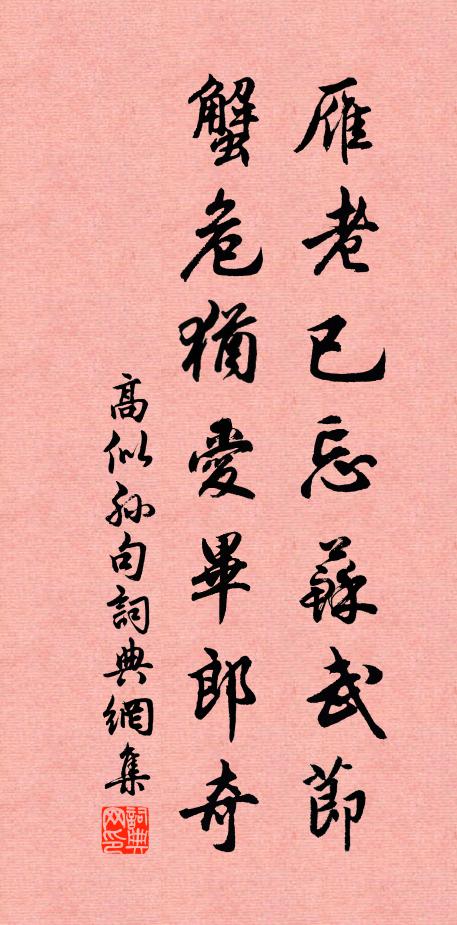 雁老已忘蘇武節
蟹危猶愛畢郎奇
高似孫句詞典網集
詞典网印